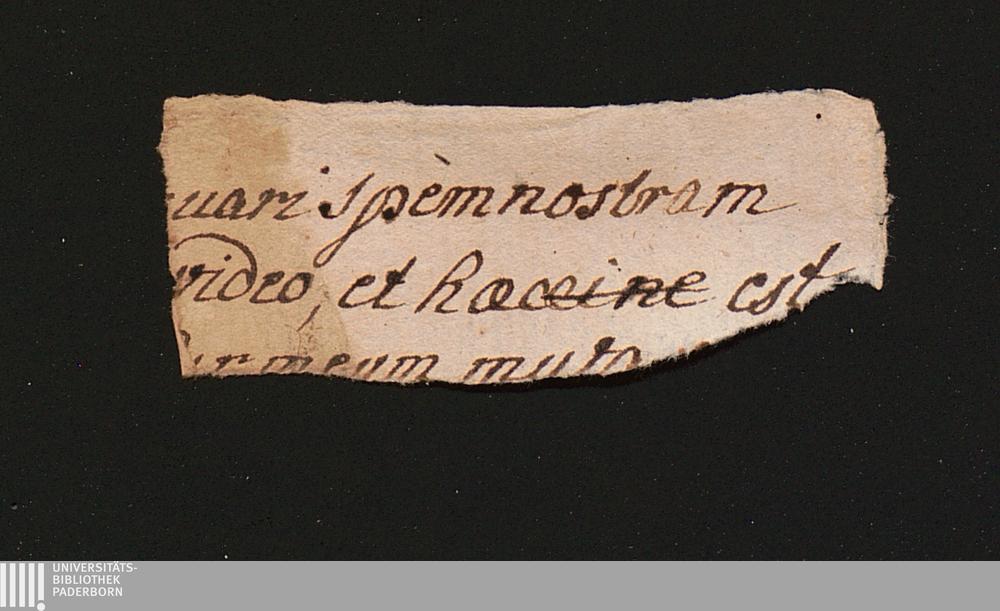 uari spèm nostram
video, et haccine est
meum muta
UNIVERSITÄTS-
BIBLIOTHEK
PADERBORN